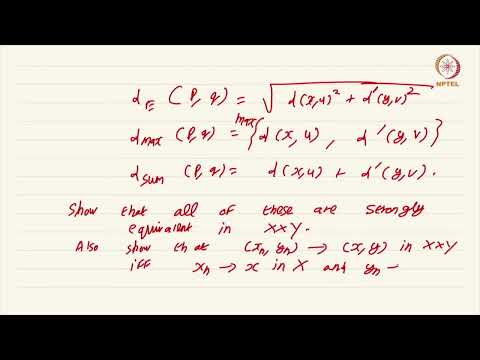 NPTEL
d_E (P, q) = √(d(x,u)² + d'(y,v)²)
d_max (P, q) = max {d(x, u), d'(y, v)}
d_sum (P, q) = d(x,u) + d'(y,v).
Show that all of these are strongly
equivalent in X×Y.
Also show that (xn, yn) → (x, y) in X×Y
iff xn → x in X and yn -